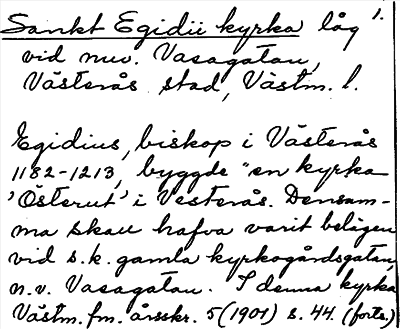 1.
Sankt Egidii kyrka låg
vid nuv. Vasagatan,
Västerås stad, Västm. l.
Egidius, biskop i Västerås
1182-1213, byggde "en kyrka
'Österut' i Vesterås. Densam-
ma skall hafva varit belägen
vid s.k. gamla kyrkogårdsgatan,
n.v. Vasagatan. I denna kyrka
Västm. fm. årsskr. 5 (1901) s. 44. (forts.)